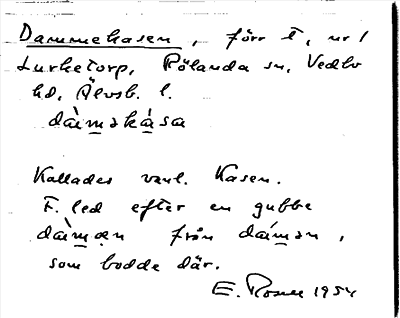 Dammekasen, förr t, nr 1
Lurketorp, Rölanda sn, Vedbo
hd, Älvsb. l.
dàməkása
Kallades vanl. Kasen.
F. led efter en gubbe
dàmən från dámən,
som bodde där.
E. Rosell 1954